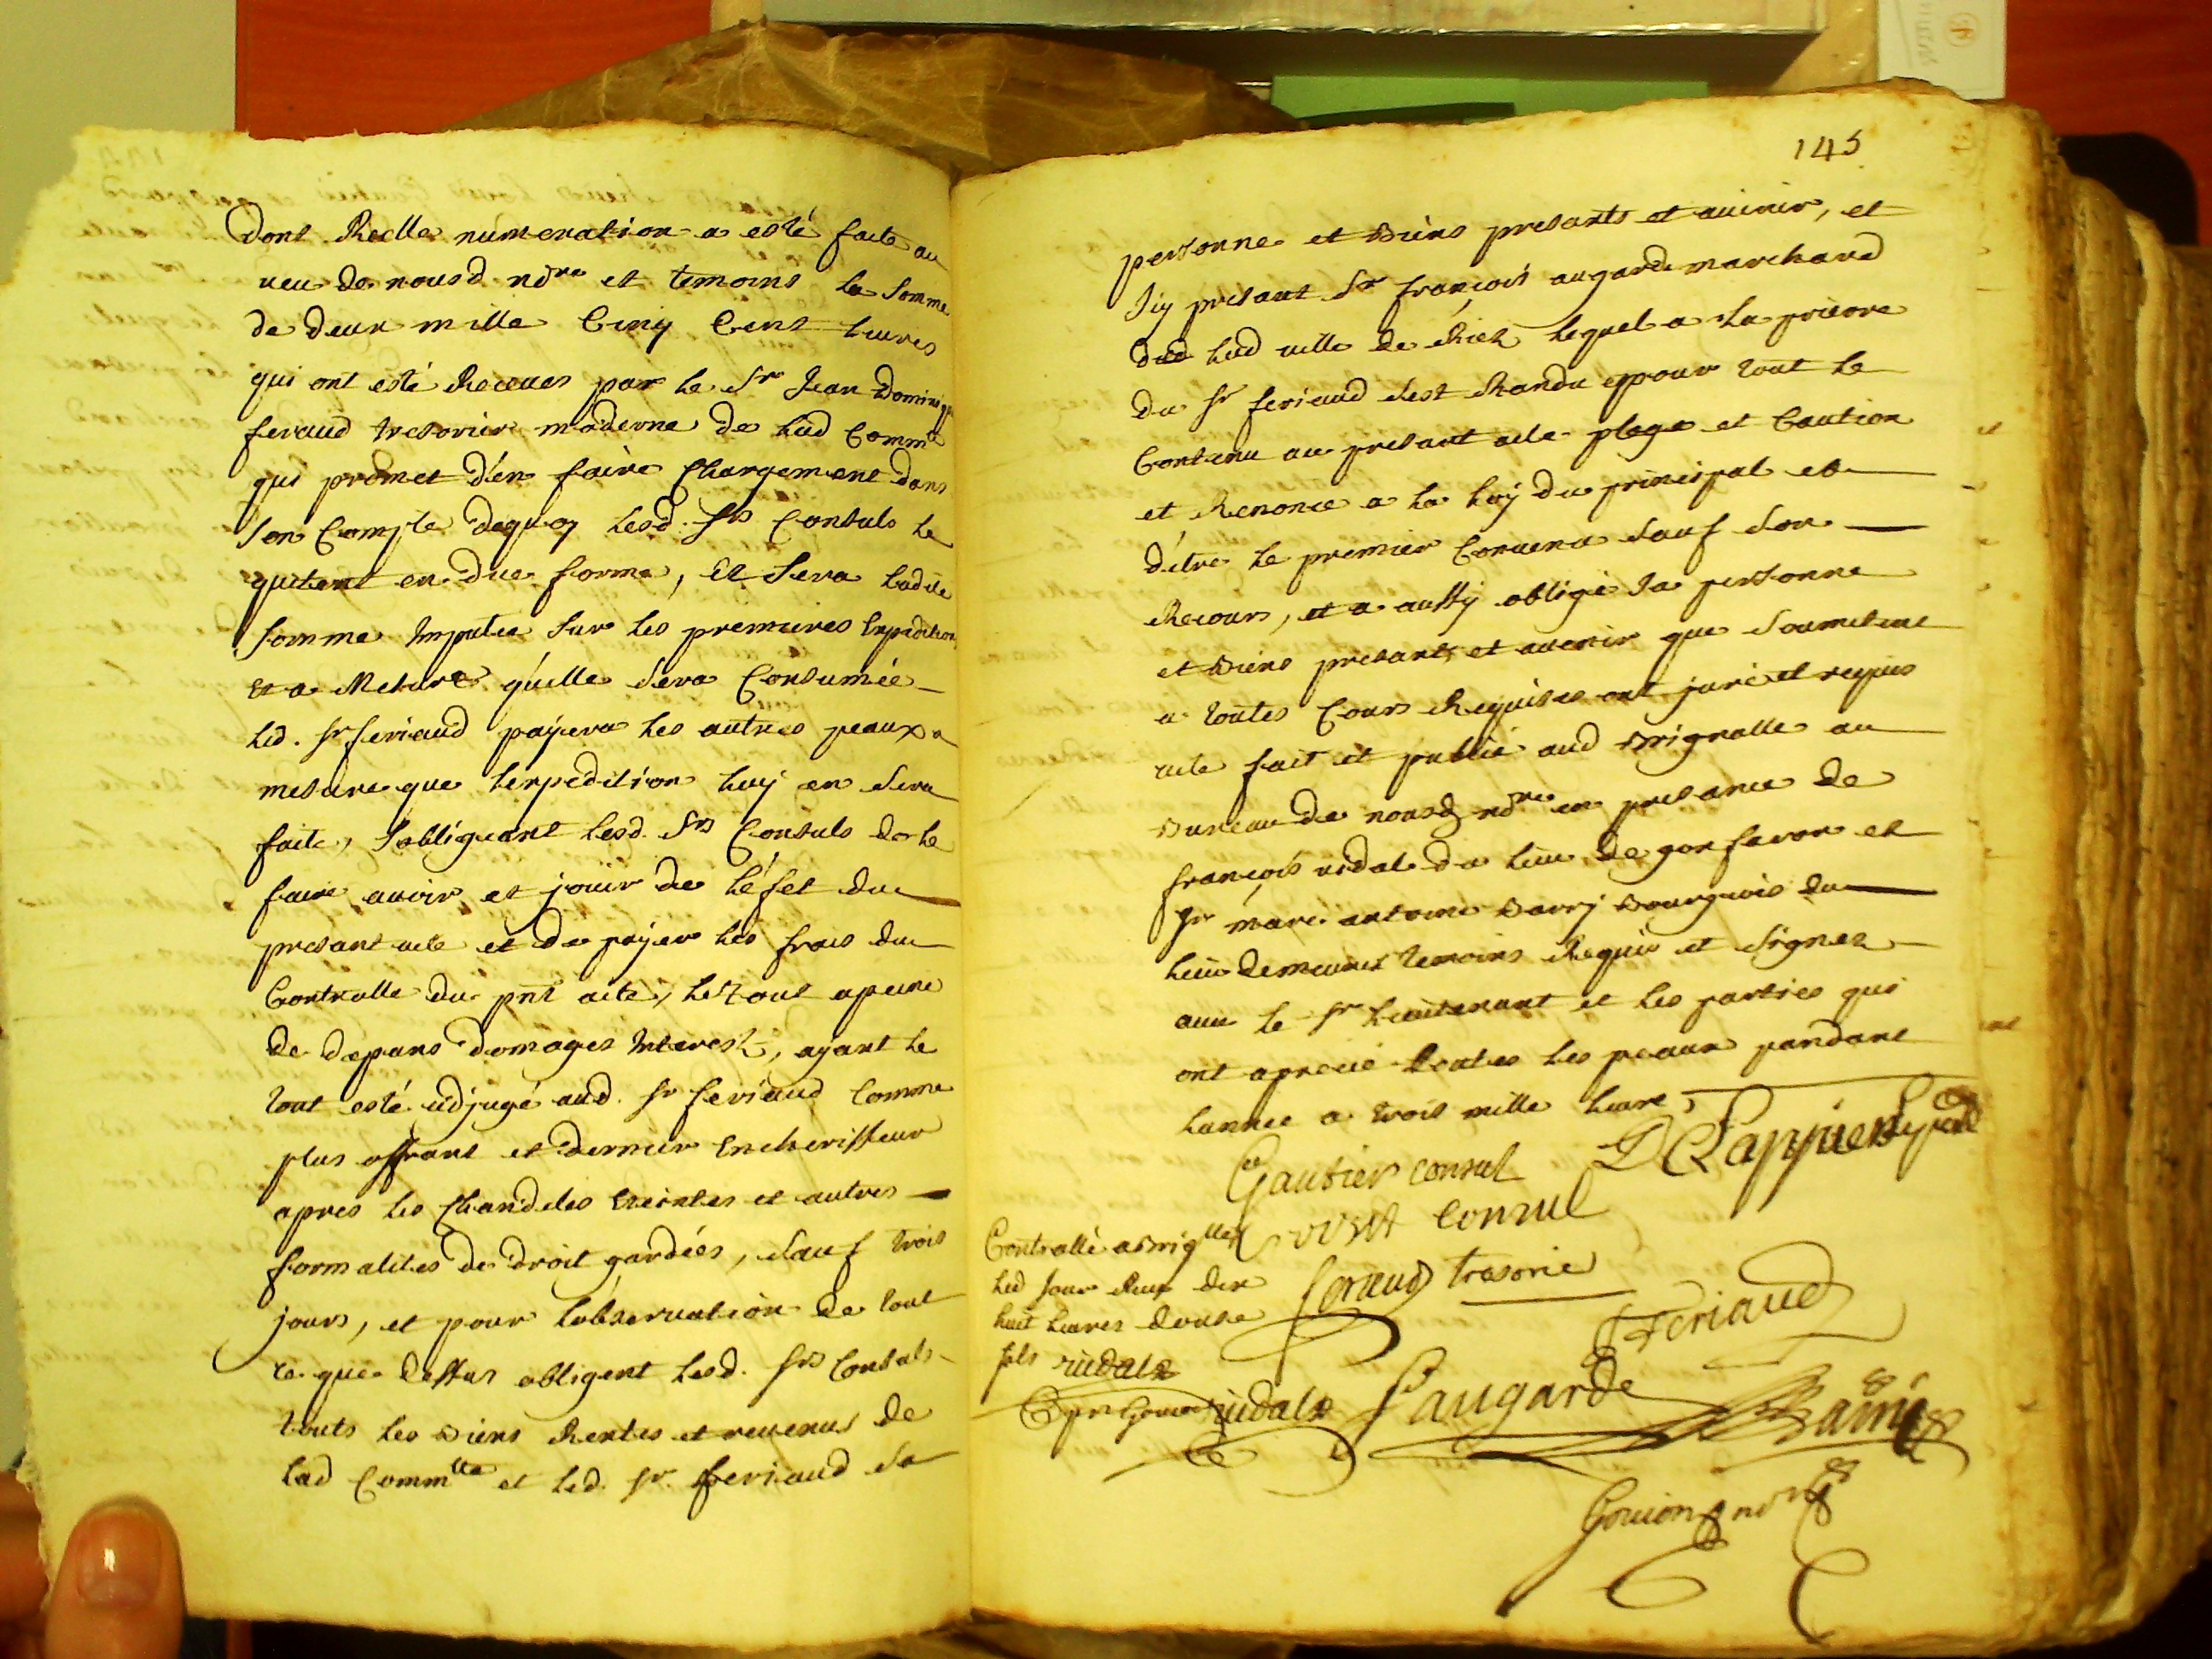 dont Reelle numeration a esté faite au
veu de nousd. nore et temoins la somme
de deux mille Cinq Cens livres
qui ont esté Receues par le Sr Jean Dominique
feraud tresorier moderne de lad Commté
qui promet d'en faire Chargement dans
son Compte dequoy lesd. Srs Consuls le
quitent en due forme, Et sera ladite
somme Imputée sur les premieres Expeditions
Et a Mesure quelle sera Consumée
led. Sr feriaud payera les autres peaux a
mesure que lexpedition luy en sera
faite, s'obligeant lesd. Srs Consuls de le
faire avoir et jouir de léfet du
presant acte et de payer les frais du
Controlle du pnt acte, le tout a peine
de depans domages Interest, ayant le
tout esté adjugé aud. Sr feriaud Comme
plus offrant et dernier Encherisseur
apres les Chandeles Eteintes et autres
formalites de droit gardées, sauf trois
jours, et pour l'observation de tout
ce que dessus obligent lesd. Srs Consuls
touts les biens Rentes et revenus de
lad Commté et led. Sr. feriaud sa
145
personne et biens presants et avenir, et
Icy presant Sr françois augarde marchand
de lad ville de Riez lequel a la priere
du Sr feriaud s'est Randu pour tout le
Contenu au presant acte plege et Caution
et Renonce a la loy du principal et
d'étre le premier Convenu sauf son
Recours, et a aussy obligé sa personne
et biens presants et avenir que soumetent
a toutes Cours Requises ont juré et requis
acte fait et publié aud brignolle au
bureau de nousd nore en presance de
françois vidal du lieu de gonfaron et
Sr marc antoine barry bourgeois du
lieu temoins Requis et signez
avec le Sr Lieutenant et les parties qui
ont aprecié toutes les peaux pandant
lannee a trois mille livres
Gautier Consul
Consul
Controllé a briglles
led jour Reçu dix
huit livres douse
sols vidal
feriaud tresorie
J Feriaud
vidal
F augarde
Gouion nore